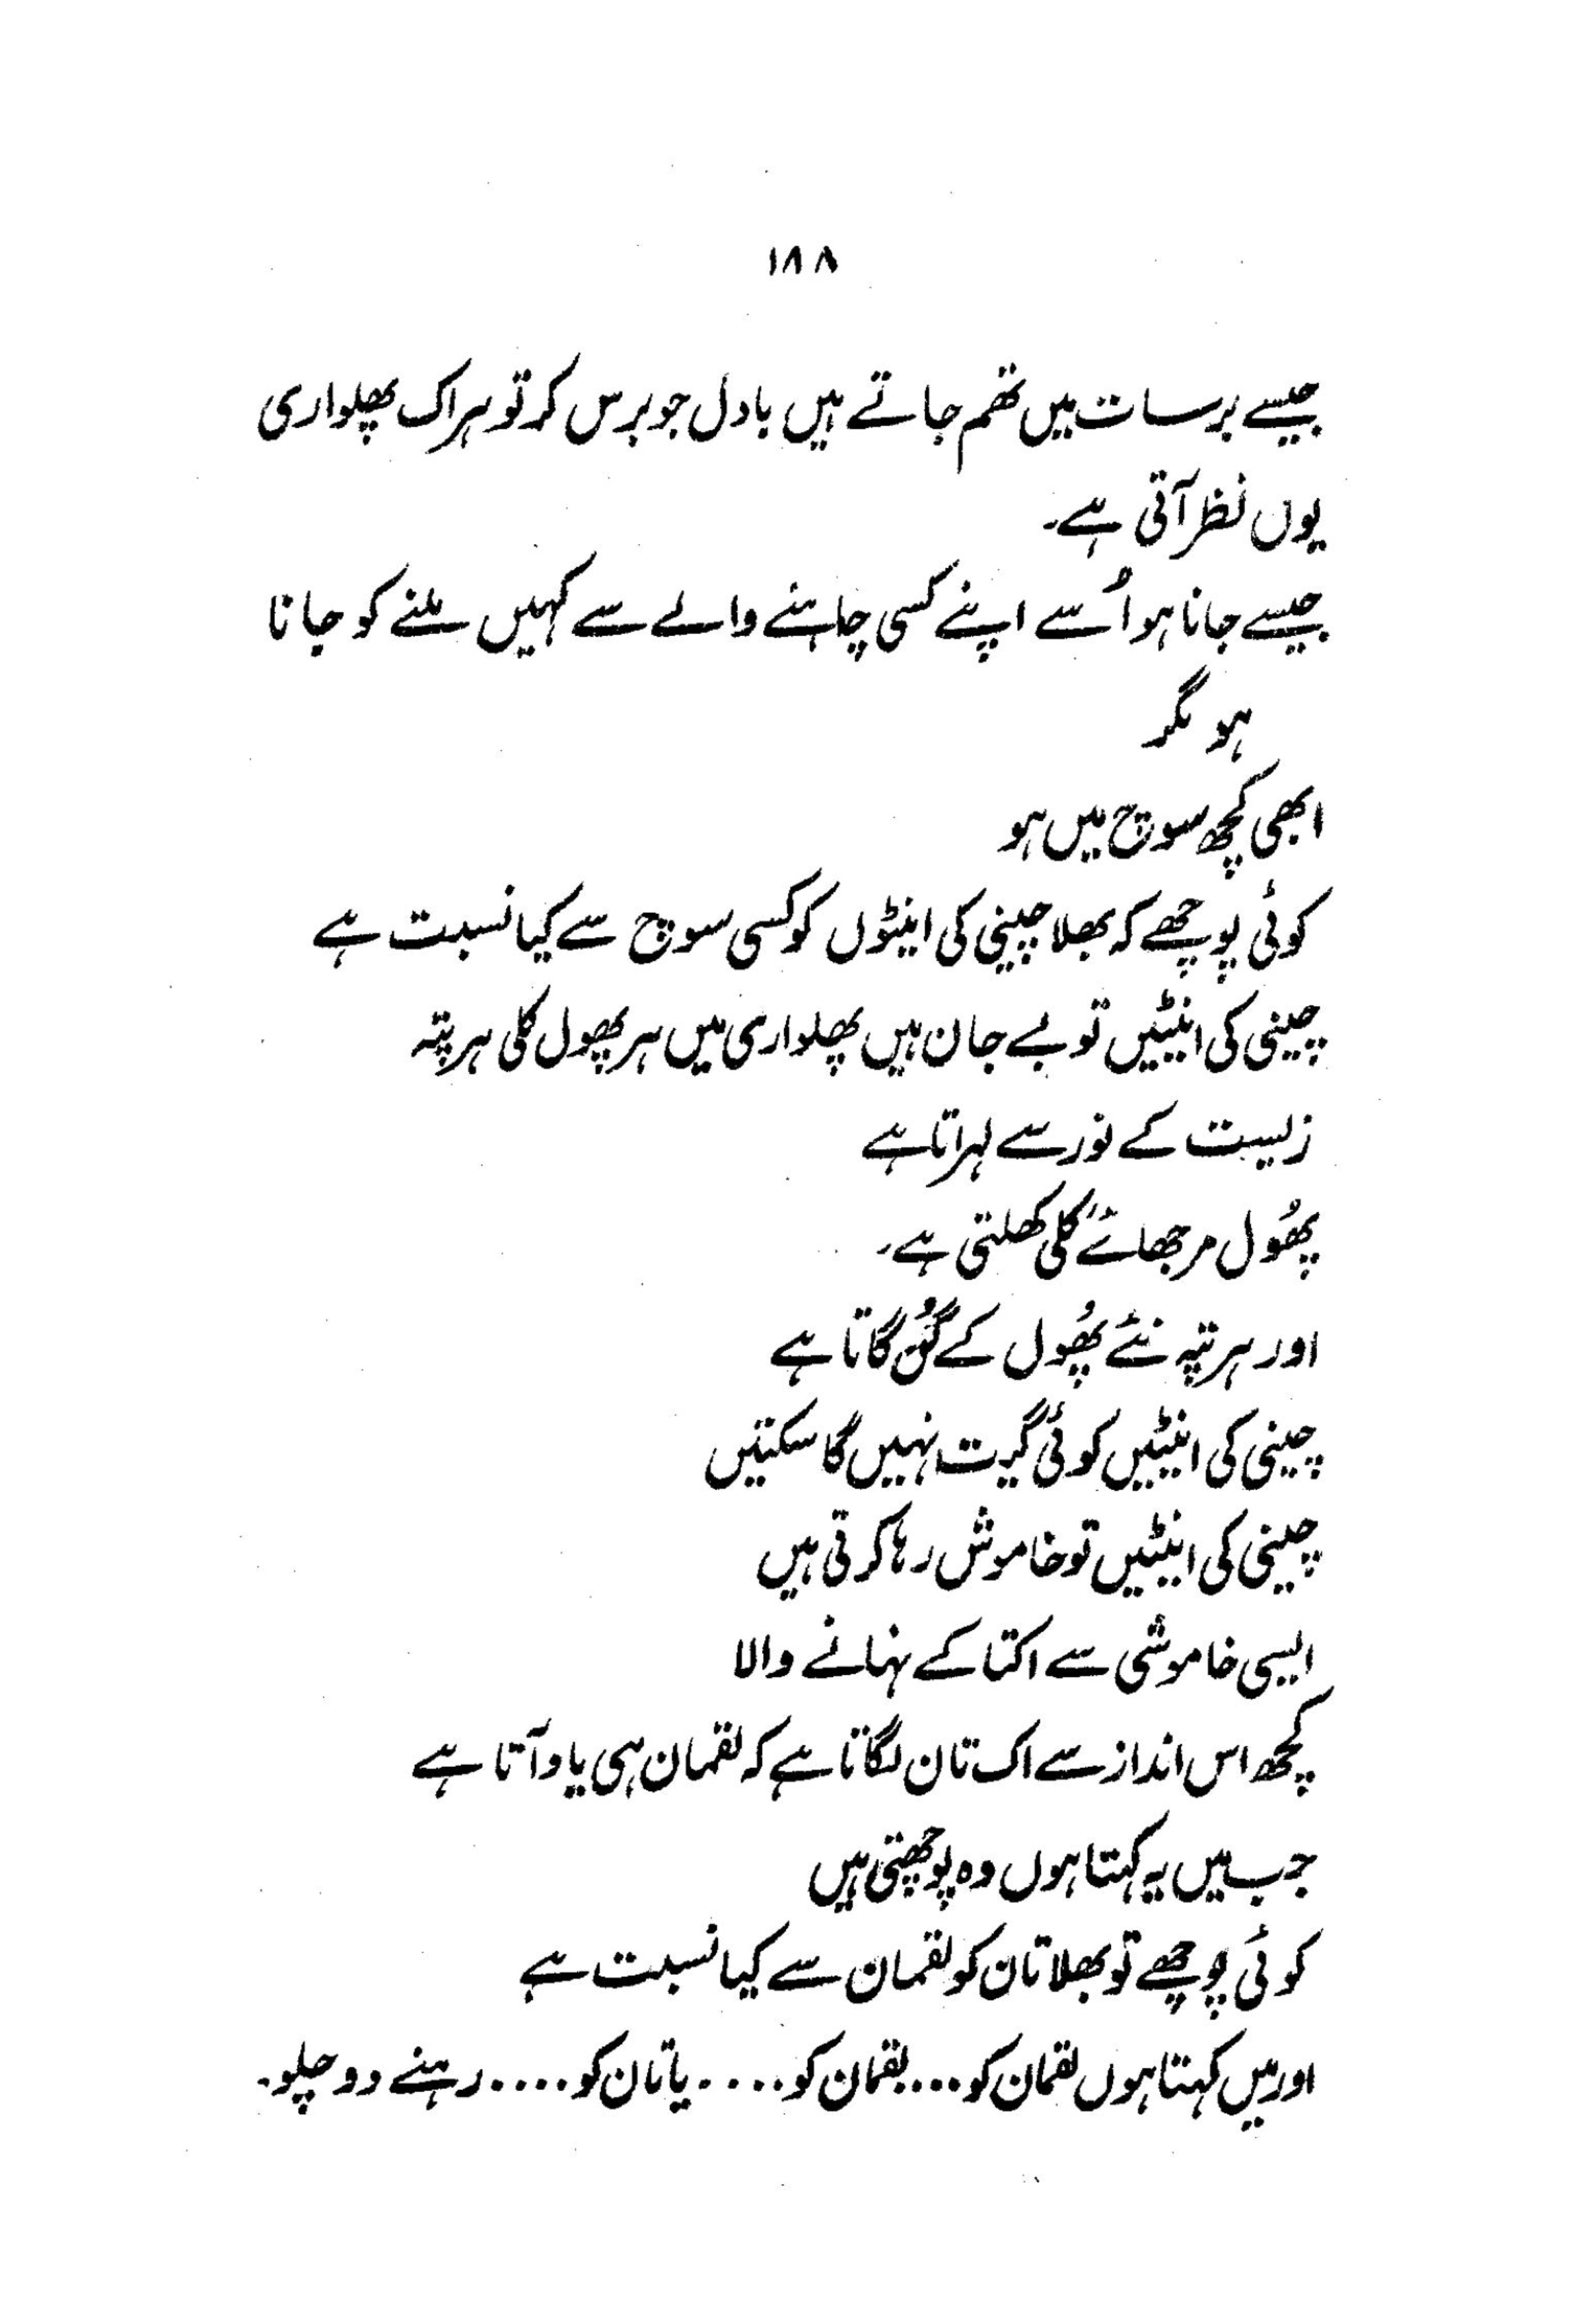 ۱۸۸
جیسے برسات میں تھم جاتے ہیں بادل جو برس کر تو ہر اک پھلواری
یوں نظر آتی ہے۔
جیسے جانا ہو اُسے اپنے کسی چاہنے والے سے کہیں ملنے کو جانا
ہو مگر
ابھی کچھ سوچ میں ہو
کوئی پوچھے کہ بھلا چینی کی اینٹوں کو کسی سوچ سے کیا نسبت ہے
چینی کی اینٹیں تو بے جان ہیں پھلواری میں ہر پھول کلی ہر پتہ
زیست کے نور سے لہراتا ہے
پھُول مرجھائے کلی کھلتی ہے۔
اور ہر پتہ نئے پھُول کے گُن گاتا ہے
چینی کی اینٹیں کوئی گیت نہیں گا سکتیں
چینی کی اینٹیں تو خاموش رہا کرتی ہیں
ایسی خاموشی سے اکتا کے نہانے والا
کچھ اس انداز سے اک تان لگاتا ہے کہ لقمان ہی یاد آتا ہے
جب میں یہ کہتا ہوں وہ پوچھتی ہیں
کوئی پوچھے تو بھلا تان کو لقمان سے کیا نسبت ہے
اور میں کہتا ہوں لقمان کو... لقمان کو.... یا تان کو.... رہنے دو چلو۔